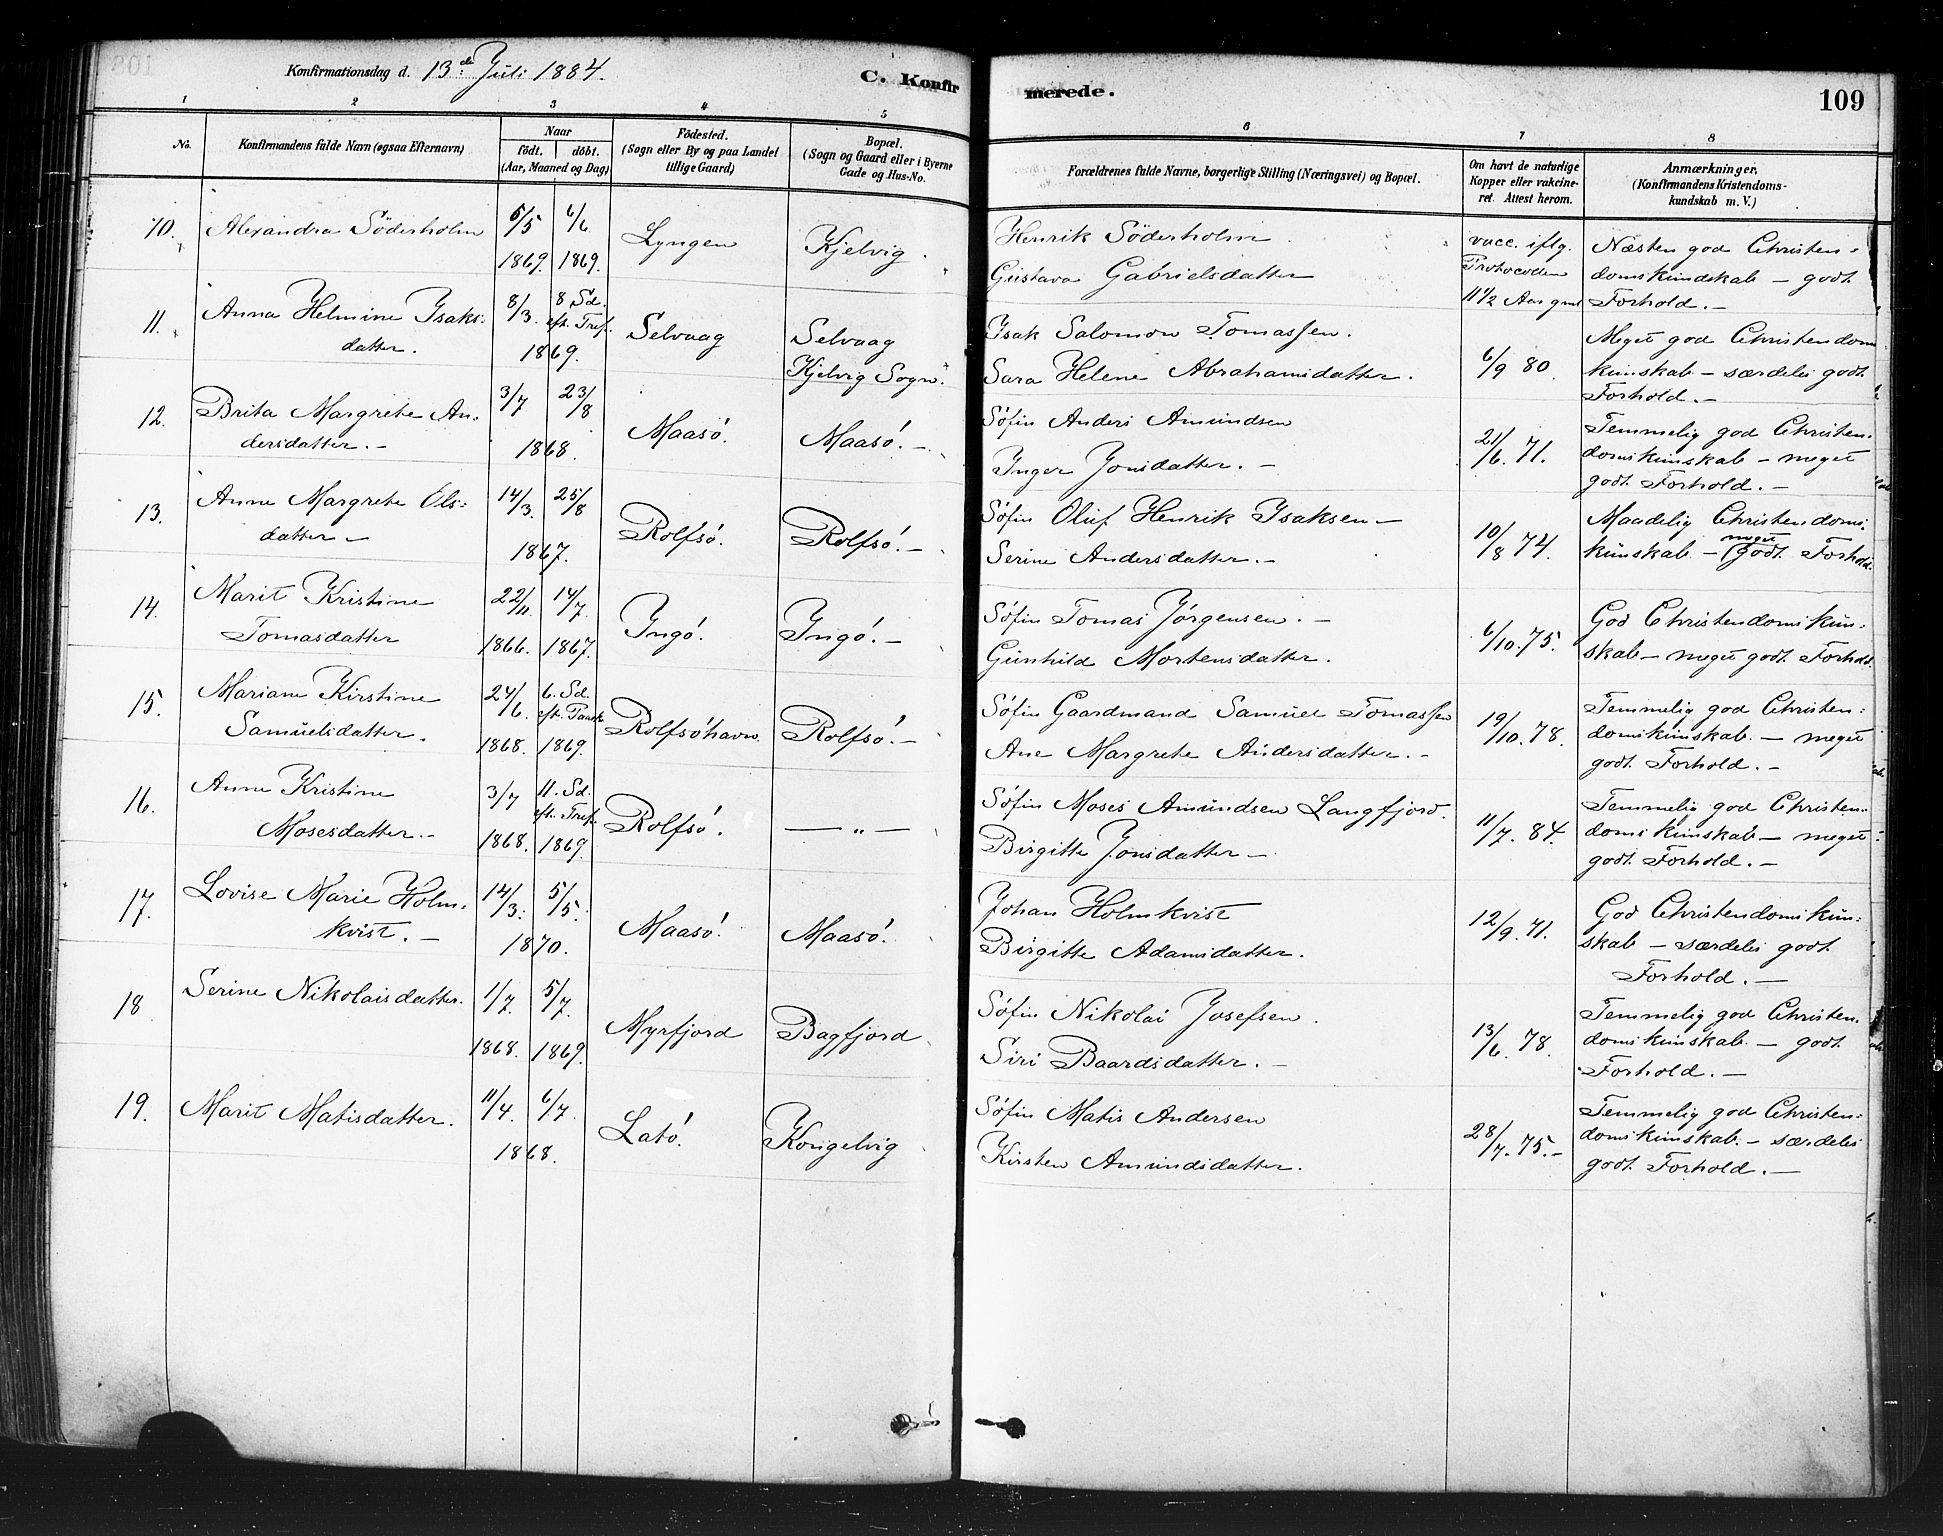 Konfirmationsdag d. 13de Juli 1884.
C. Konfirmerede.
109
1 2 3 4 5 6 7 8
No.
Konfirmandens fulde Navn (ogsaa Efternavn)
Naar
födt. döbt.
(Aar, Maaned og Dag)
Födested.
(Sogn eller By og paa Landet
tillige Gaard)
Bopæl.
(Sogn og Gaard eller i Byerne
Gade og Hus-No.
Forældrenes fulde Navne, borgerlige Stilling (Næringsvei) og Bopæl.
Om havt de naturlige
Kopper eller vakcine-
ret. Attest herom.
Anmærkninger.
(Konfirmandens Kristendoms-
kundskab m. V.)
10. Alexandra Söderholm
5/5 1869. 6/6 1869.
Lyngen
Kjelvig.
Henrik Söderholm
Gustava Gabrielsdatter
vacc. iflg.
Protocollen
11 1/2 Aar gml
Næsten god Christen-
domskundskab - godt
Forhold. -
11. Anna Helmine Isaks-
datter.
8/3. 8 Sd.
eft. Tref.
1869.
Selvaag
Selvaag
Kjelvig Sogn.
Isak Salomon Tomassen.
Sara Helene Abrahamsdatter.
6/9 80.
Meget god Christendom
kunskab - særdeles godt
Forhold. -
12. Brita Margrethe An-
dersdatter. -
3/7 23/8
1868.
Maasö.
Maasö. -
Söfin Anders Amundsen
Inger Jonsdatter. -
21/6. 71.
Temmelig god Christen-
domskunskab - meget
godt Forhold. -
13. Anne Margrethe Ols-
datter -
14/3. 25/8
1867.
Rolfsö.
Rolfsö. -
Söfin Oluf Henrik Isaksen -
Serine Andersdatter. -
10/8 74.
Maadelig Christendoms-
kunskab - meget godt Forhold.
14. Marit Kristine
Tomasdatter
22/11. 14/7.
1866. 1867.
Ingö.
Ingö. -
Söfin Tomas Jörgensen. -
Gunhild Mortensdatter.
6/10. 75.
God Christendomskun-
skab - meget godt Forhold.
15. Mariane Kirstine
Samuelsdatter.
24/6. 6. Sd.
eft. Paaske
1868. 1869.
Rolfsöhavn.
Rolfsö. -
Söfin Gaardmand Samuel Tomassen
Ane Margrete Andersdatter. -
19/10. 78.
Temmelig god Christen-
domskunskab. - meget
godt Forhold. -
16. Anne Kristine
Mosesdatter. -
3/7 11. Sd.
eft. Tref.
1868. 1869.
Rolfsö.
— „ —
Söfin Moses Amundsen Langfjord.
Birgitte Jonsdatter -
11/7. 84.
Temmelig god Christen-
domskunskab - meget
godt Forhold. -
17. Lovise Marie Holm-
kvist. -
14/3. 5/5.
1870.
Maasö.
Maasö.
Johan Holmkvist
Birgitte Adamsdatter.
12/9. 71.
God Christendomskun-
skab - særdeles godt
Forhold. -
18. Serine Nikolaisdatter.
1/7. 5/7.
1868. 1869.
Myrfjord
Bagfjord
Söfin Nikolai Josefsen.
Siri Baardsdatter. -
13/6. 78.
Temmelig god Christen-
domskunskab. - godt
Forhold. -
19. Marit Matisdatter.
11/4. 6/7.
1868.
Latö.
Kongelvig
Söfin Matis Andersen
Kirsten Amundsdatter.
28/7. 75. -
Temmelig god Christen-
domskunskab. - særdeles
godt Forhold. -